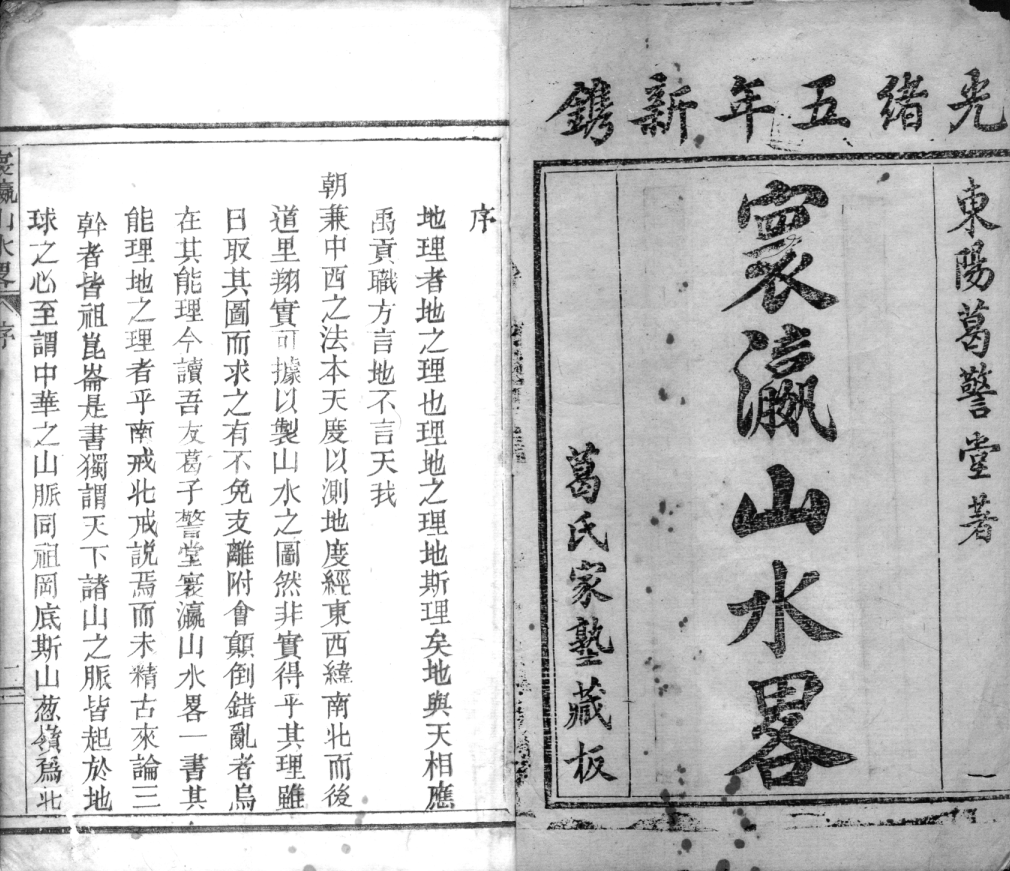 光緒五年新鐫
東陽葛警堂著
寰瀛山水畧
葛氏家塾藏板
一
序
地理者地之理也理地之理地斯理矣地與天相應
禹貢職方言地不言天我
朝兼中西之法本天度以測地度經東西緯南北而後
道里翔實可據以製山水之圖然非實得乎其理雖
日取其圖而求之有不免支離附會顛倒錯亂者烏
在其能理今讀吾友葛子警堂寰瀛山水畧一書其
能理地之理者乎南戒北戒説焉而未精古來論三
幹者皆祖崑崙是書獨謂天下諸山之脈皆起於地
球之心至謂中華之山脈同祖岡底斯山葱嶺爲北
寰瀛山水畧
序
二